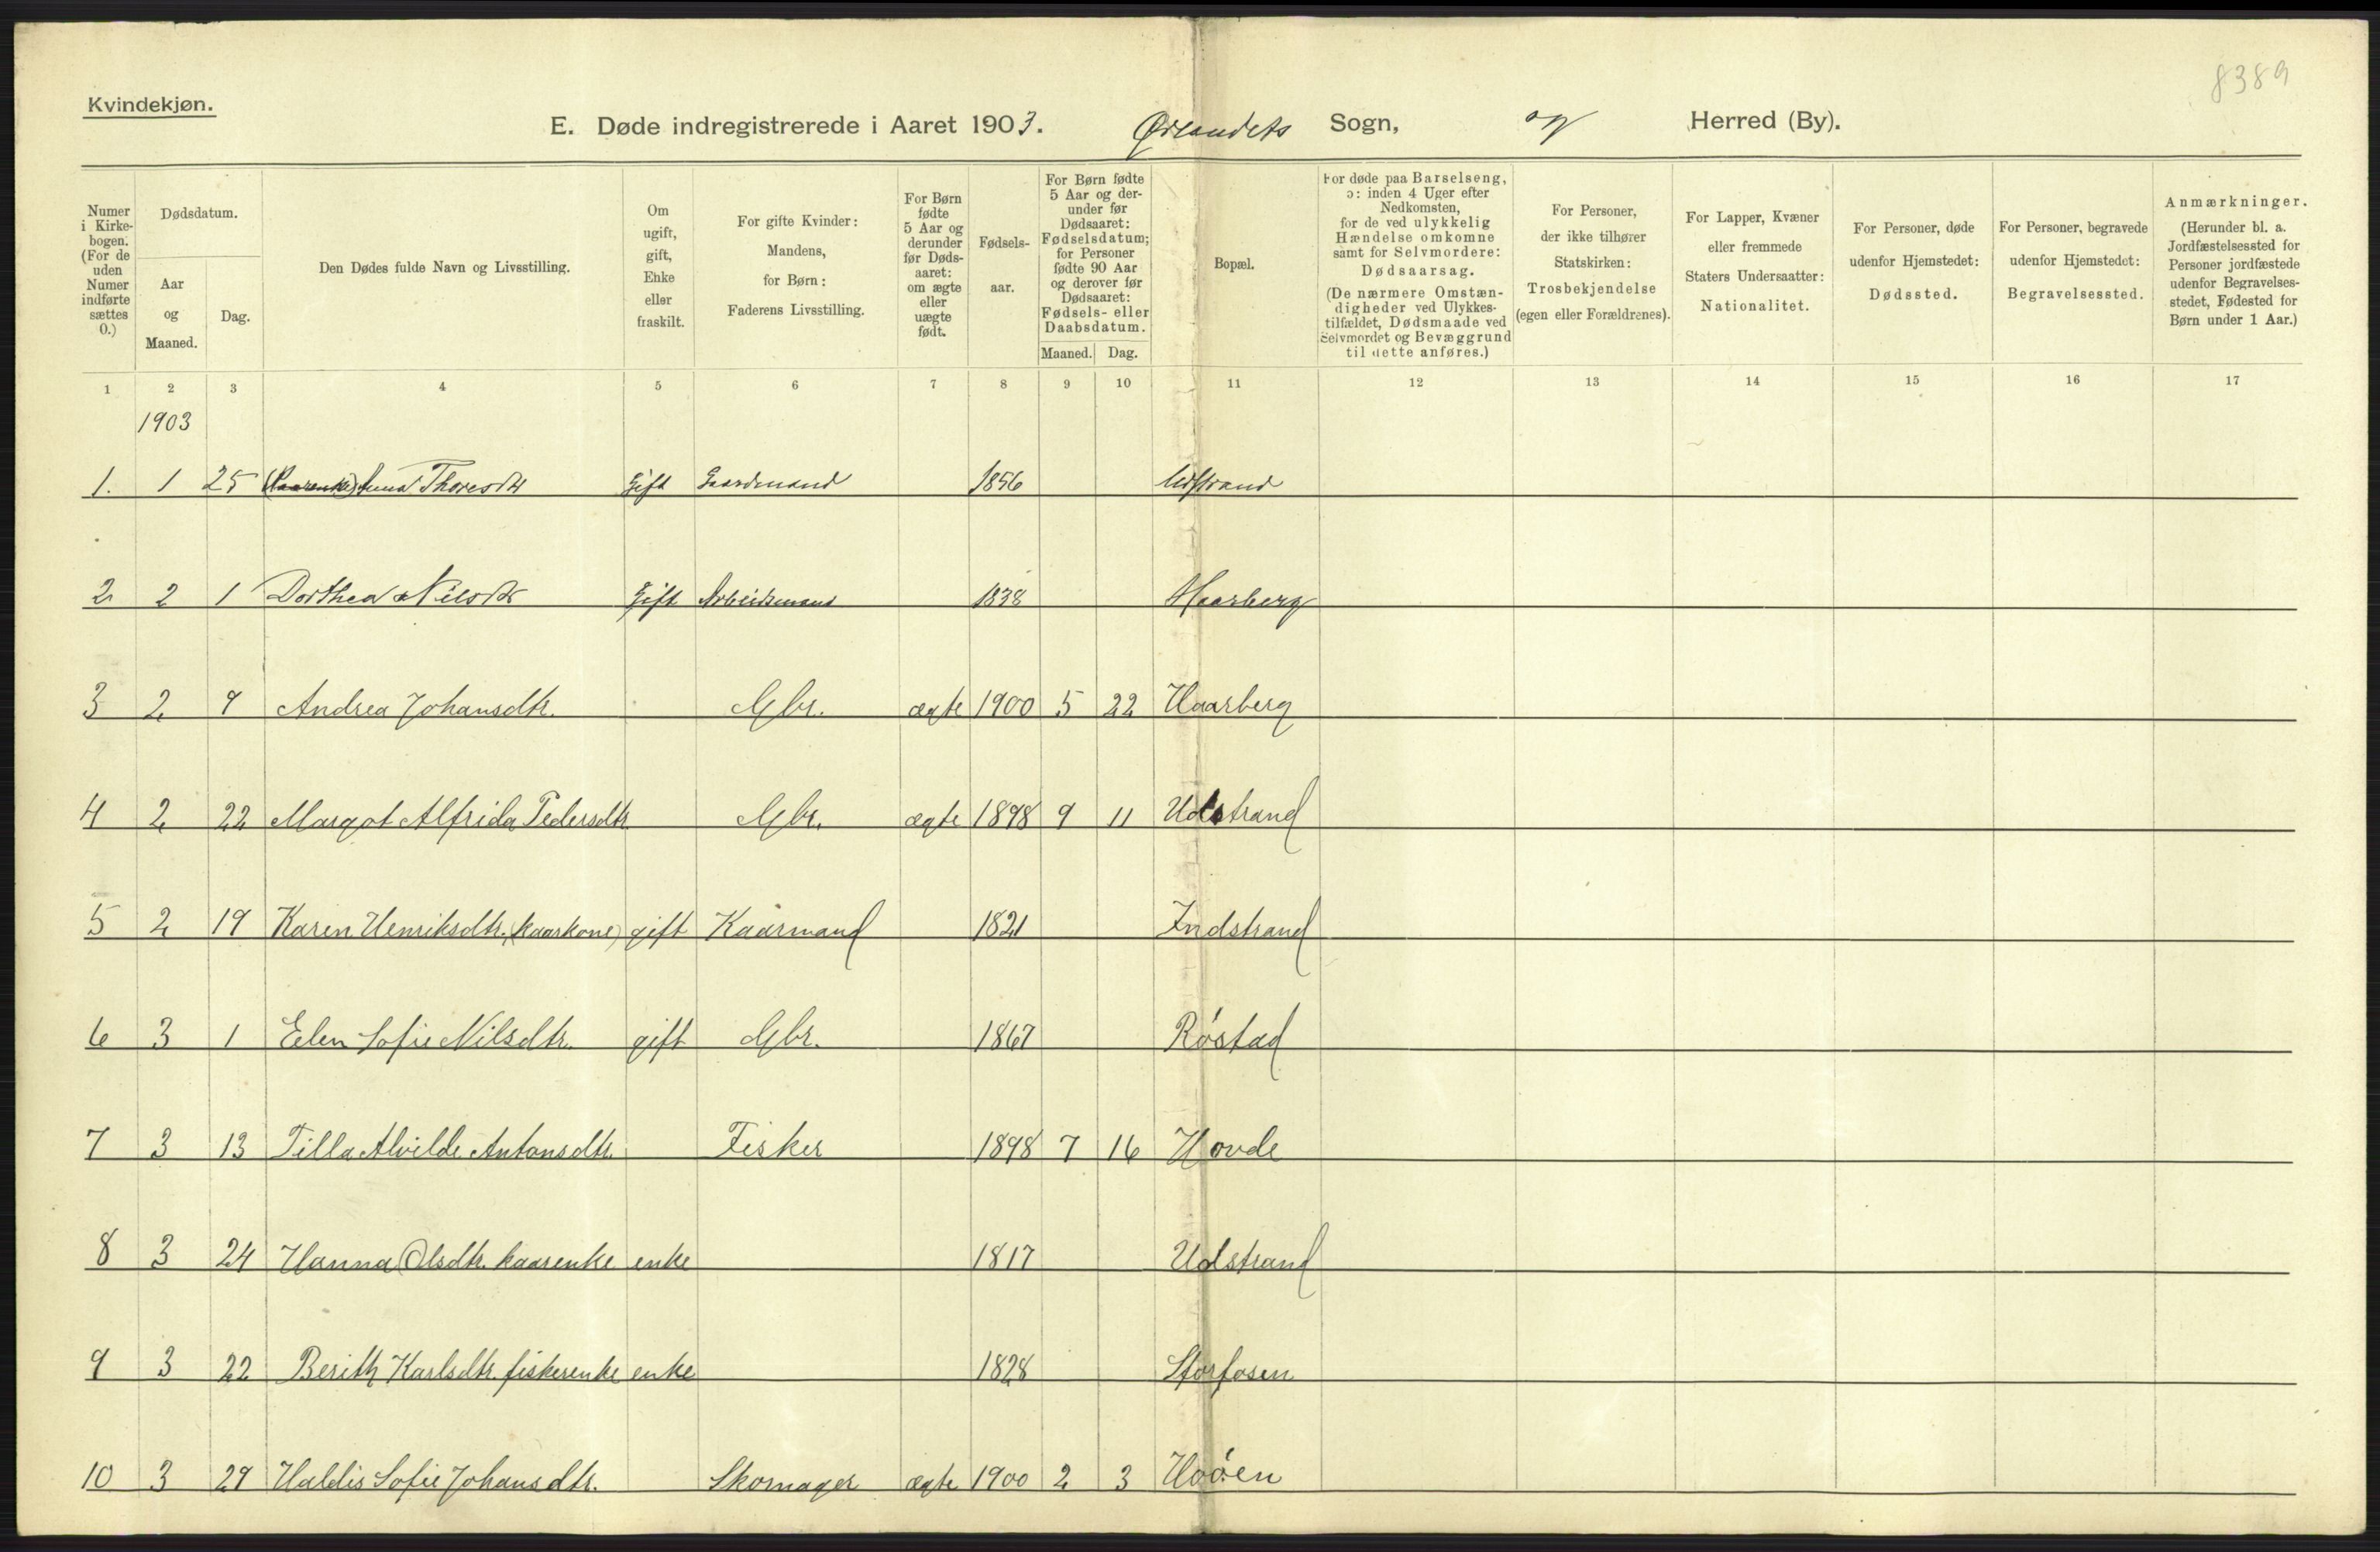 8389
Kvindekjøn.
E. Døde indregistrerede i Aaret 1903. Ørlandets Sogn, og Herred (By).
Numer i Kirke-bogen. (For de uden Numer indførte sættes 0.)
Dødsdatum.
Aar og Maaned.
Dag.
Den Dødes fulde Navn og Livsstilling.
Om ugift, gift, Enke eller fraskilt.
For gifte Kvinder: Mandens, for Børn: Faderens Livsstilling.
For Børn fødte 5 Aar og derunder før Døds-aaret: om ægte eller uægte født.
Fødsels-aar.
For Børn fødte 5 Aar og der-under før Dødsaaret: Fødselsdatum; for Personer fødte 90 Aar og derover før Dødsaaret: Fødsels- eller Daabsdatum.
Maaned. Dag.
Bopæl.
For døde paa Barselseng, ɔ: inden 4 Uger efter Nedkomsten, for de ved ulykkelig Hændelse omkomne samt for Selvmordere: Dødsaarsag. (De nærmere Omstæn-digheder ved Ulykkes-tilfældet, Dødsmaade ved Selvmordet og Bevæggrund til dette anføres.)
For Personer, der ikke tilhører Statskirken: Trosbekjendelse (egen eller Forældrenes).
For Lapper, Kvæner eller fremmede Staters Undersaatter: Nationalitet.
For Personer, døde udenfor Hjemstedet: Dødssted.
For Personer, begravede udenfor Hjemstedet: Begravelsessted.
Anmærkninger. (Herunder bl. a. Jordfæstelsessted for Personer jordfæstede udenfor Begravelses-stedet, Fødested for Børn under 1 Aar.)
1 2 3 4 5 6 7 8 9 10 11 12 13 14 15 16 17
1903
1. 1 25 (Kaarenke) Anna Thoresdtr Gift Gaardmand 1856 Udstrand
2 2 1 Dorthea Nilsdtr Gift Arbeidsmand 1838 Haarberg
3 2 9 Andrea Johansdtr. Gbr. ægte 1900 5 22 Haarberg
4 2 22 Margot Alfrida Pedersdtr. Gbr. ægte 1898 9 11 Udstrand
5 2 19 Karen Henriksdtr. (kaarkone) gift Kaarmand 1821 Indstrand
6 3 1 Elen Sofie Nilsdtr. gift Gbr. 1867 Røstad
7 3 13 Tilla Alvilde Antonsdtr. Fisker 1898 7 16 Hovde
8 3 24 Hanna Olsdtr. kaarenke enke 1817 Udstrand
9 3 22 Berith Karlsdtr. fiskerenke enke 1828 Storfosen
10 3 29 Haldis Sofie Johansdtr. Skomager ægte 1900 2 3 Hoøen